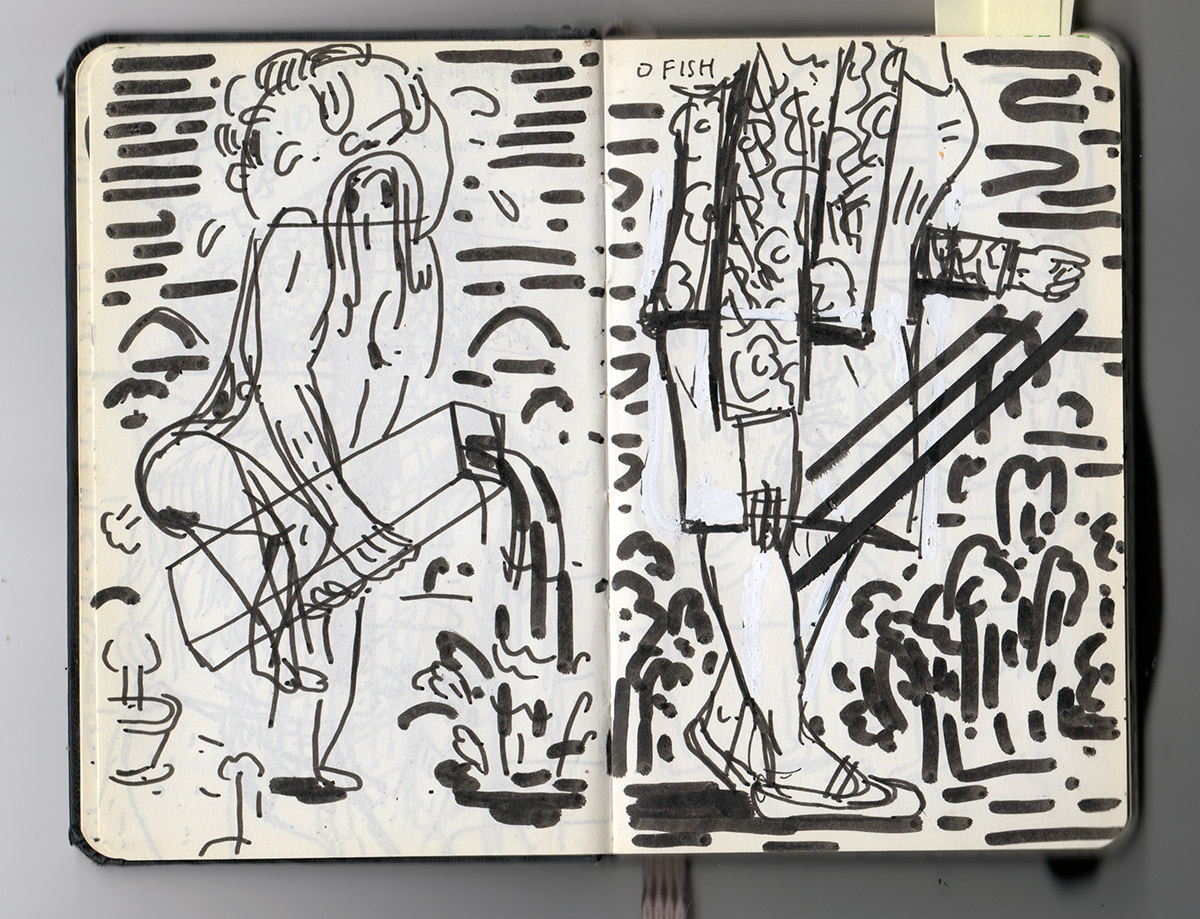 O FISH